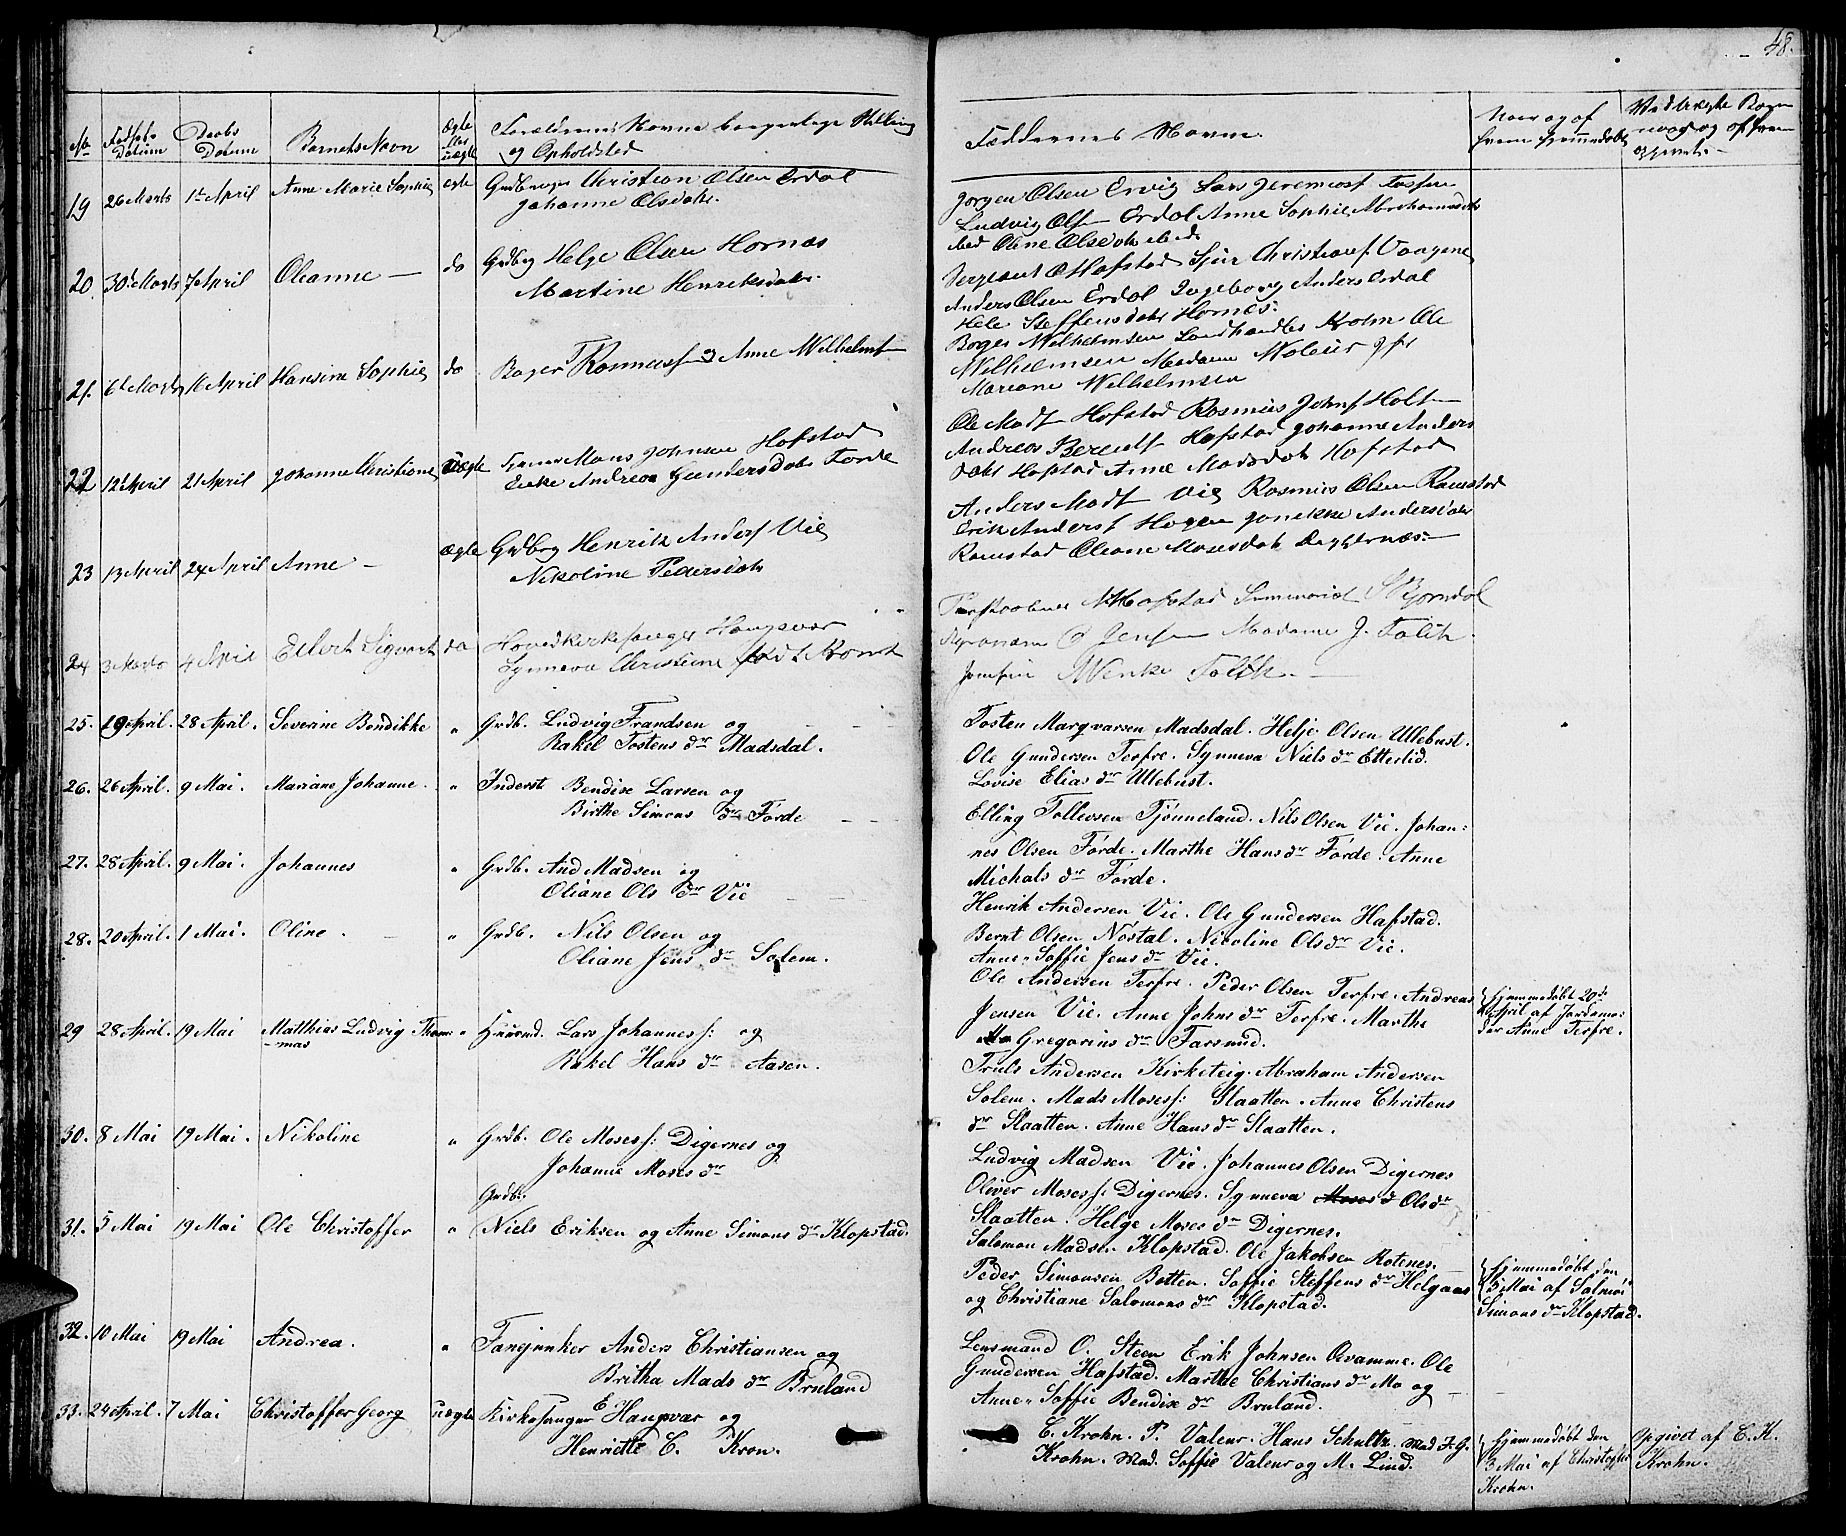 48.
No
Fødsels Datum
Daabs Datum
Barnets Navn
Ægte eller uægte
Forældrenes Navne borgerlige Stilling
og Opholdsted
Faddernes Navne.
Naar og af
hvem hjemmedøbt
19 26 Marts 1st April Anne Marie Sophie ægte Grdbruger Christian Olsen Erdal
Johanne Olsdatr.
Jørgen Olsen Ervig Lars Jeremiasf
Ludvig Olsf Erdal Anne Sophie Abrahamsdtr
20 30d Marts 7 April Oleanne — do Grdbrg Helge Olsen Hornæs
Martine Henriksdatr
Sergeant Hafstad
Anders Olsen Erdal Ingeborg Anders Erdal
Steffensdatr Hornes.
21. 6t Marts 11 April Hansine Sophie do Bager Rasmusf og Anne Wilhelmf
Bager Wilhelmsen Landhandler Krohn Ole
Wilhelmsen Madame
Mariane Wilhelmsen
22 12 April 21 April Johanne Christiane Uægte Mons Johnsen Hafstad
Enke Andrea Gundersdatr Førde
Ole Madsf Hafstad Rasmus Johnsf Holt
Andreas Berentf Hafstad Johanne Anders
datr Hafstad Anne Madsdatr Hafstad
23 13 April 24 April Anne — Ægte Grdbrg Henrik Andersf Vie
Nikoline Pedersdatr
Anders Madsf Vie Rasmus Olsen Ramstad
Erik Andersf Hagen Janikke Andersdatr
Ramstad Oleane Mosesdatr
24 3 Marts 4 April Eilert Sigvart do Hovedkirkesanger Haugsvær
Synneva Christine født Krohn
Hafstad Seminarist Bjørndal
Jensen Madame J. Falch.
Jomfru Wenke Falch.
25. 19 April. 28 April. Severine Bendikke " Grdb. Ludvig Frandsen og
Rakel Tostens dr Madsdal.
Tosten Marqvarsen Madsdal. Helje Olsen Ullebust.
Ole Gundersen Terfre. Synneva Niels dr Etterlid.
Lovise Elias dr Ullebust.
26. 26 April. 9 Mai. Mariane Johanne. " Inderst Bendix Larsen og
Birthe Simons dr Førde
Elling Tollevsen Tjønneland. Nils Olsen Vie. Johan=
nes Olsen Førde. Marthe Hans dr Førde. Anne
Michals dr Førde.
27. 28 April. 9 Mai. Johannes " Grdb. And Madsen og
Oliane Ols dr Vie
Henrik Andersen Vie. Ole Gundersen Hafstad.
Bernt Olsen Nøstal. Nicoline Olsdr Vie.
Anne-Soffie Jens dr Vie.
28. 20 April. 1 Mai. Oline. " Grdb. Nils Olsen og
Oliane Jens dr Solem.
Ole Andersen Terfre. Peder Olsen Terfre. Andreas
Jensen Vie. Anne Johns dr Terfre. Marthe
Gregorius dr Farsund.
hjemmedøbt 20de
April af Jordemo=
der Anne Terfre.
29 28 April. 19 Mai Matthias Ludvig Thom
=mas " Huusmd. Lars Johannesf: og
Rakel Hans dr Aasen.
Truls Andersen Kirketeig. Abraham Andersen
Solem. Mads Mosesf: Slaatten. Anne Christens
dr Slaatten. Anne Hans dr Slaatten.
30. 8 Mai 19 Mai. Nikoline " Grdb. Ole Mosesf: Digernes og
Johanne Moses dr
Ludvig Madsen Vie. Johannes Olsen Digernes
Oliver Mosesf. Digernes. Synneva Moses d Olsdr
Slaatten. Helge Moses dr Digernes.
31. 5 Mai 19 Mai Ole Christoffer " Grdb.
Niels Eriksen og Anne Simons dr Klopstad.
Salomon Madsen Klopstad. Ole Jakobsen Rotenes.
Peder Simonsen Botten. Soffie Steffens dr Helgaas
og Christiane Salomons dr Klopstad.
hjemmedøbt den
5 Mai af Salmoi
Simons dr Klopstad.
32. 10 Mai 19 Mai Andrea. " Fanejunker Anders Christiansen og
Britha Mads dr Bruland
Lensmand O. Steen Erik Johnsen Qvamme. Ole
Gundersen Hafstad. Marthe Christians dr Mo og
Anne-Soffie Bendixe dr Bruland.
33. 24 April. 7 Mai Christoffer Georg uægte Kirkesanger E Haugsvær og
Henriette C. Kron.
C. Krohn. P. Valeur. Hans Schultz. Mad J. G.
Krohn. Mad. Soffie Valeur og M. Lind.
hjemmedøbt den
3 Mai af Christoffer
Krohn.
Opgivet af C. K.
Krohn.